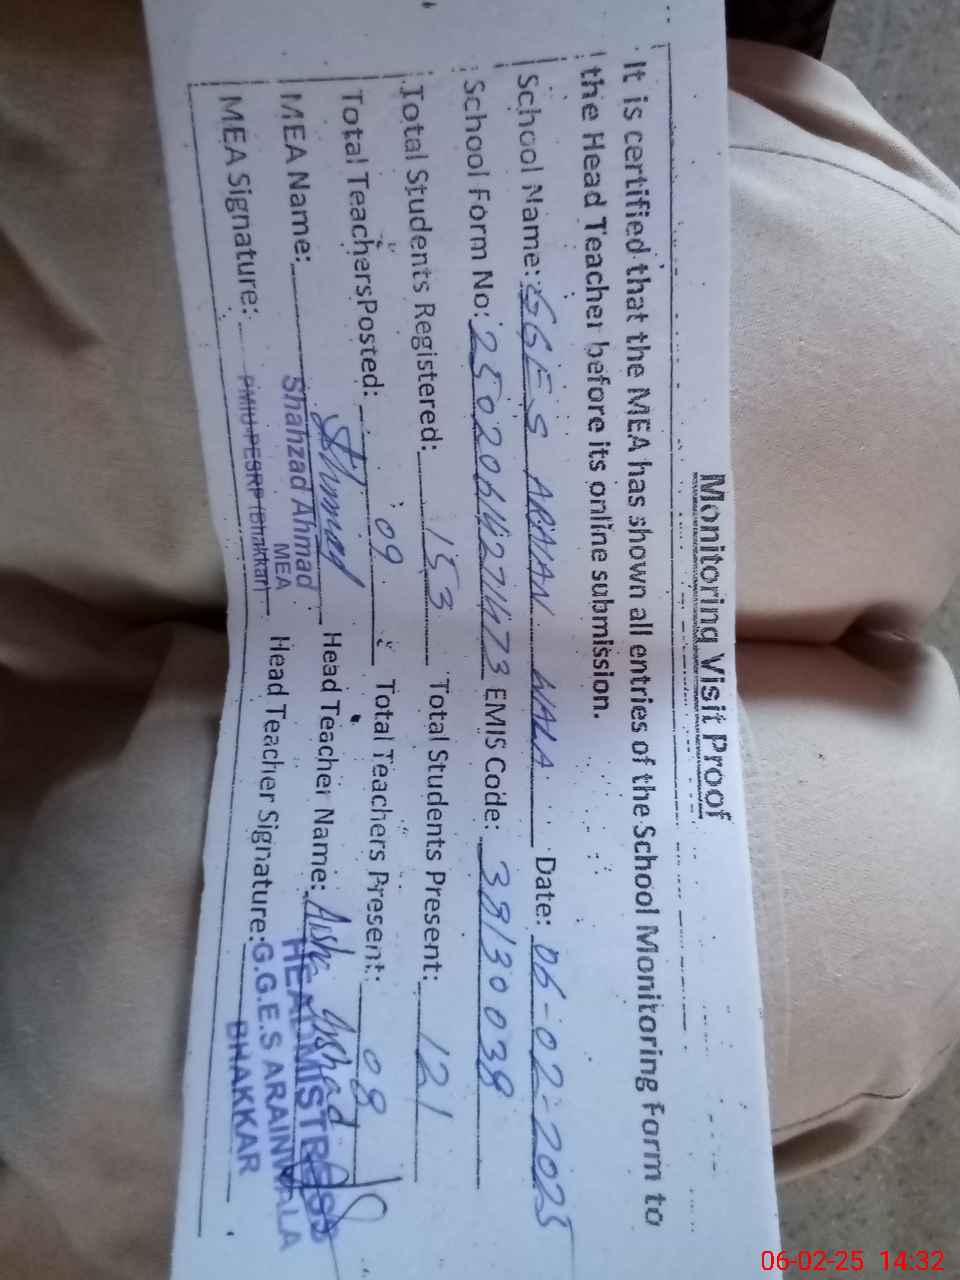 Monitoring Visit Proof
It is certified that the MEA has shown all entries of the School Monitoring Form to
the Head Teacher before its online submission.
School Name: GGES ARAIAN WALA Date: 06-02-2025
School Form No: 25020614271473 EMIS Code: 38130038
Total Students Registered: 153 Total Students Present: 121
Total Teachers Posted: 09 Total Teachers Present: 08
MEA Name: Shahzad Ahmad Head Teacher Name: Aisha Arshad
MEA
HEADMISTRESS
MEA Signature: PMIU-PESRP (Bhakkar) Head Teacher Signature: G.G.E.S ARAINWALA
BHAKKAR
06-02-25 14:32